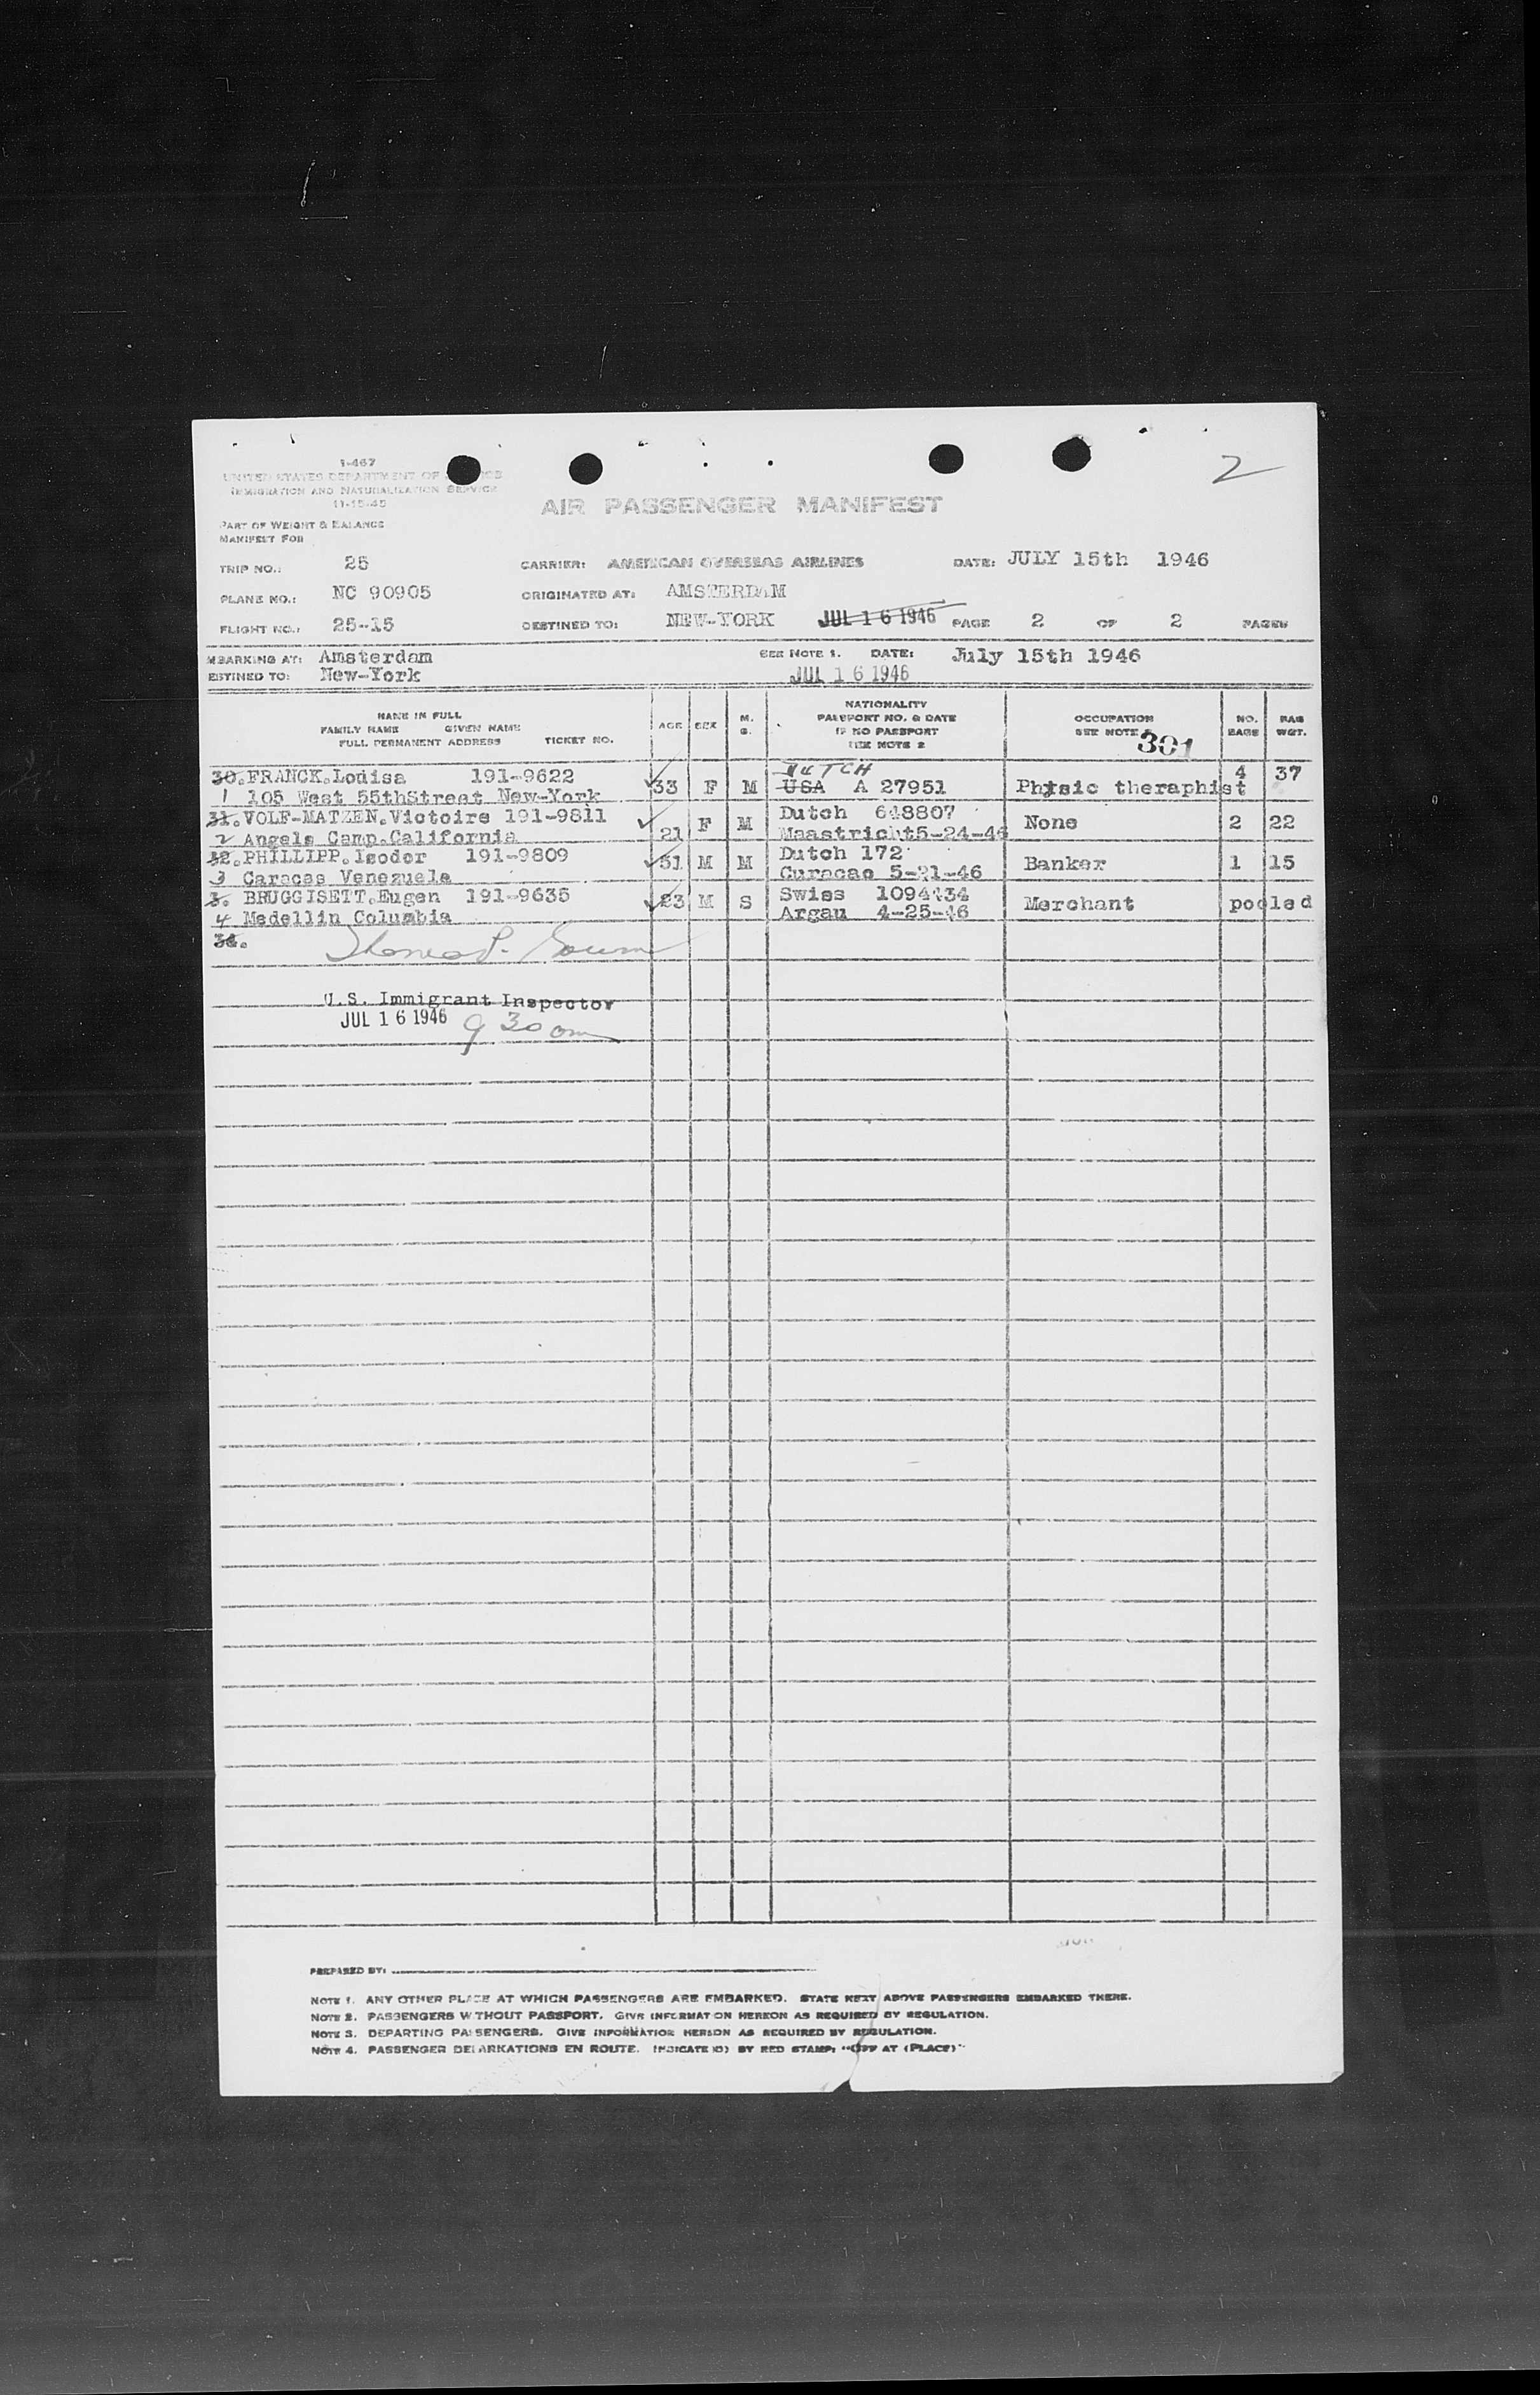 2
I-467
UNITED STATES DEPARTMENT OF
IMMIGRATION AND NATURALIZATION SERVICE
11-15-45
AIR PASSENGER MANIFEST
PART OF WEIGHT & BALANCE
MANIFEST FOR
TRIP NO.: 25 CARRIER: AMERICAN OVERSEAS AIRLINES DATE: JULY 15th 1946
PLANE NO.: NC 90905 ORIGINATED AT: AMSTERDAM
FLIGHT NO.: 25-15 DESTINED TO: NEW-YORK JUL 16 1946 PAGE 2 OF 2 PAGES
MBARKING AT: Amsterdam SEE NOTE 1. DATE: July 15th 1946
ESTINED TO: New-York JUL 16 1946
NAME IN FULL
FAMILY NAME GIVEN NAME
FULL PERMANENT ADDRESS TICKET NO.
AGE SEX M. S.
NATIONALITY
PASSPORT NO. & DATE
IF NO PASSPORT
SEE NOTE 2
OCCUPATION
SEE NOTE
301
NO. BAGS
BAG WGT.
30. FRANCK.Louisa 191-9622 33 F M DUTCH USA A 27951 Physic theraphist 4 37
1 105 West 55thStreet New-York
31. VOLF-MATZEN.Victoire 191-9811 21 F M Dutch 648807 None 2 22
2 Angels Camp.California Maastricht5-24-46
32. PHILLIPP.Isodor 191-9809 51 M M Dutch 172 Banker 1 15
3 Caracas Venezuela Curacao 5-21-46
3. BRUGGISETT.Eugen 191-9635 23 M S Swiss 1094434 Merchant pooled
4 Medellin Columbia Argau 4-25-46
34.
U.S. Immigrant Inspector
JUL 16 1946 9 30 am
PREPARED BY:
NOTE 1. ANY OTHER PLACE AT WHICH PASSENGERS ARE EMBARKED. STATE NEXT ABOVE PASSENGERS EMBARKED THERE.
NOTE 2. PASSENGERS WITHOUT PASSPORT. GIVE INFORMATION HEREON AS REQUIRED BY REGULATION.
NOTE 3. DEPARTING PASSENGERS. GIVE INFORMATION HEREON AS REQUIRED BY REGULATION.
NOTE 4. PASSENGER DEBARKATIONS EN ROUTE. INDICATE ID) BY RED STAMP: "OFF AT (PLACE)"